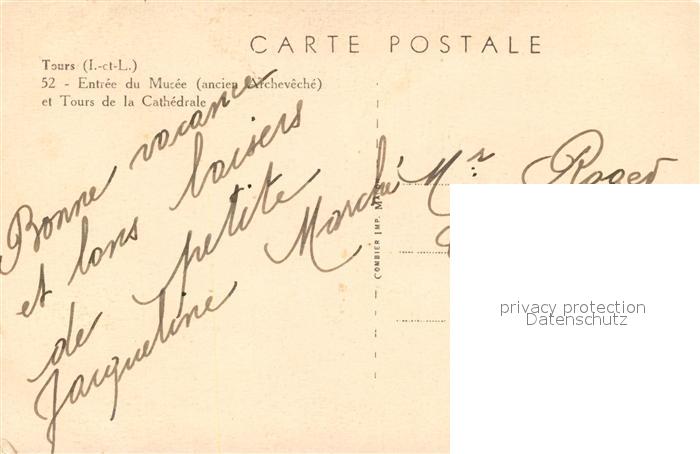 CARTE POSTALE
Tours (I.-et-L.)
52 - Entrée du Musée (ancien Archevêché)
et Tours de la Cathédrale
Bonne vacance
et bons baisers
de petite
Jacqueline Marché
Mr Roger
COMBIER IMP. MÂCON
privacy protection
Datenschutz